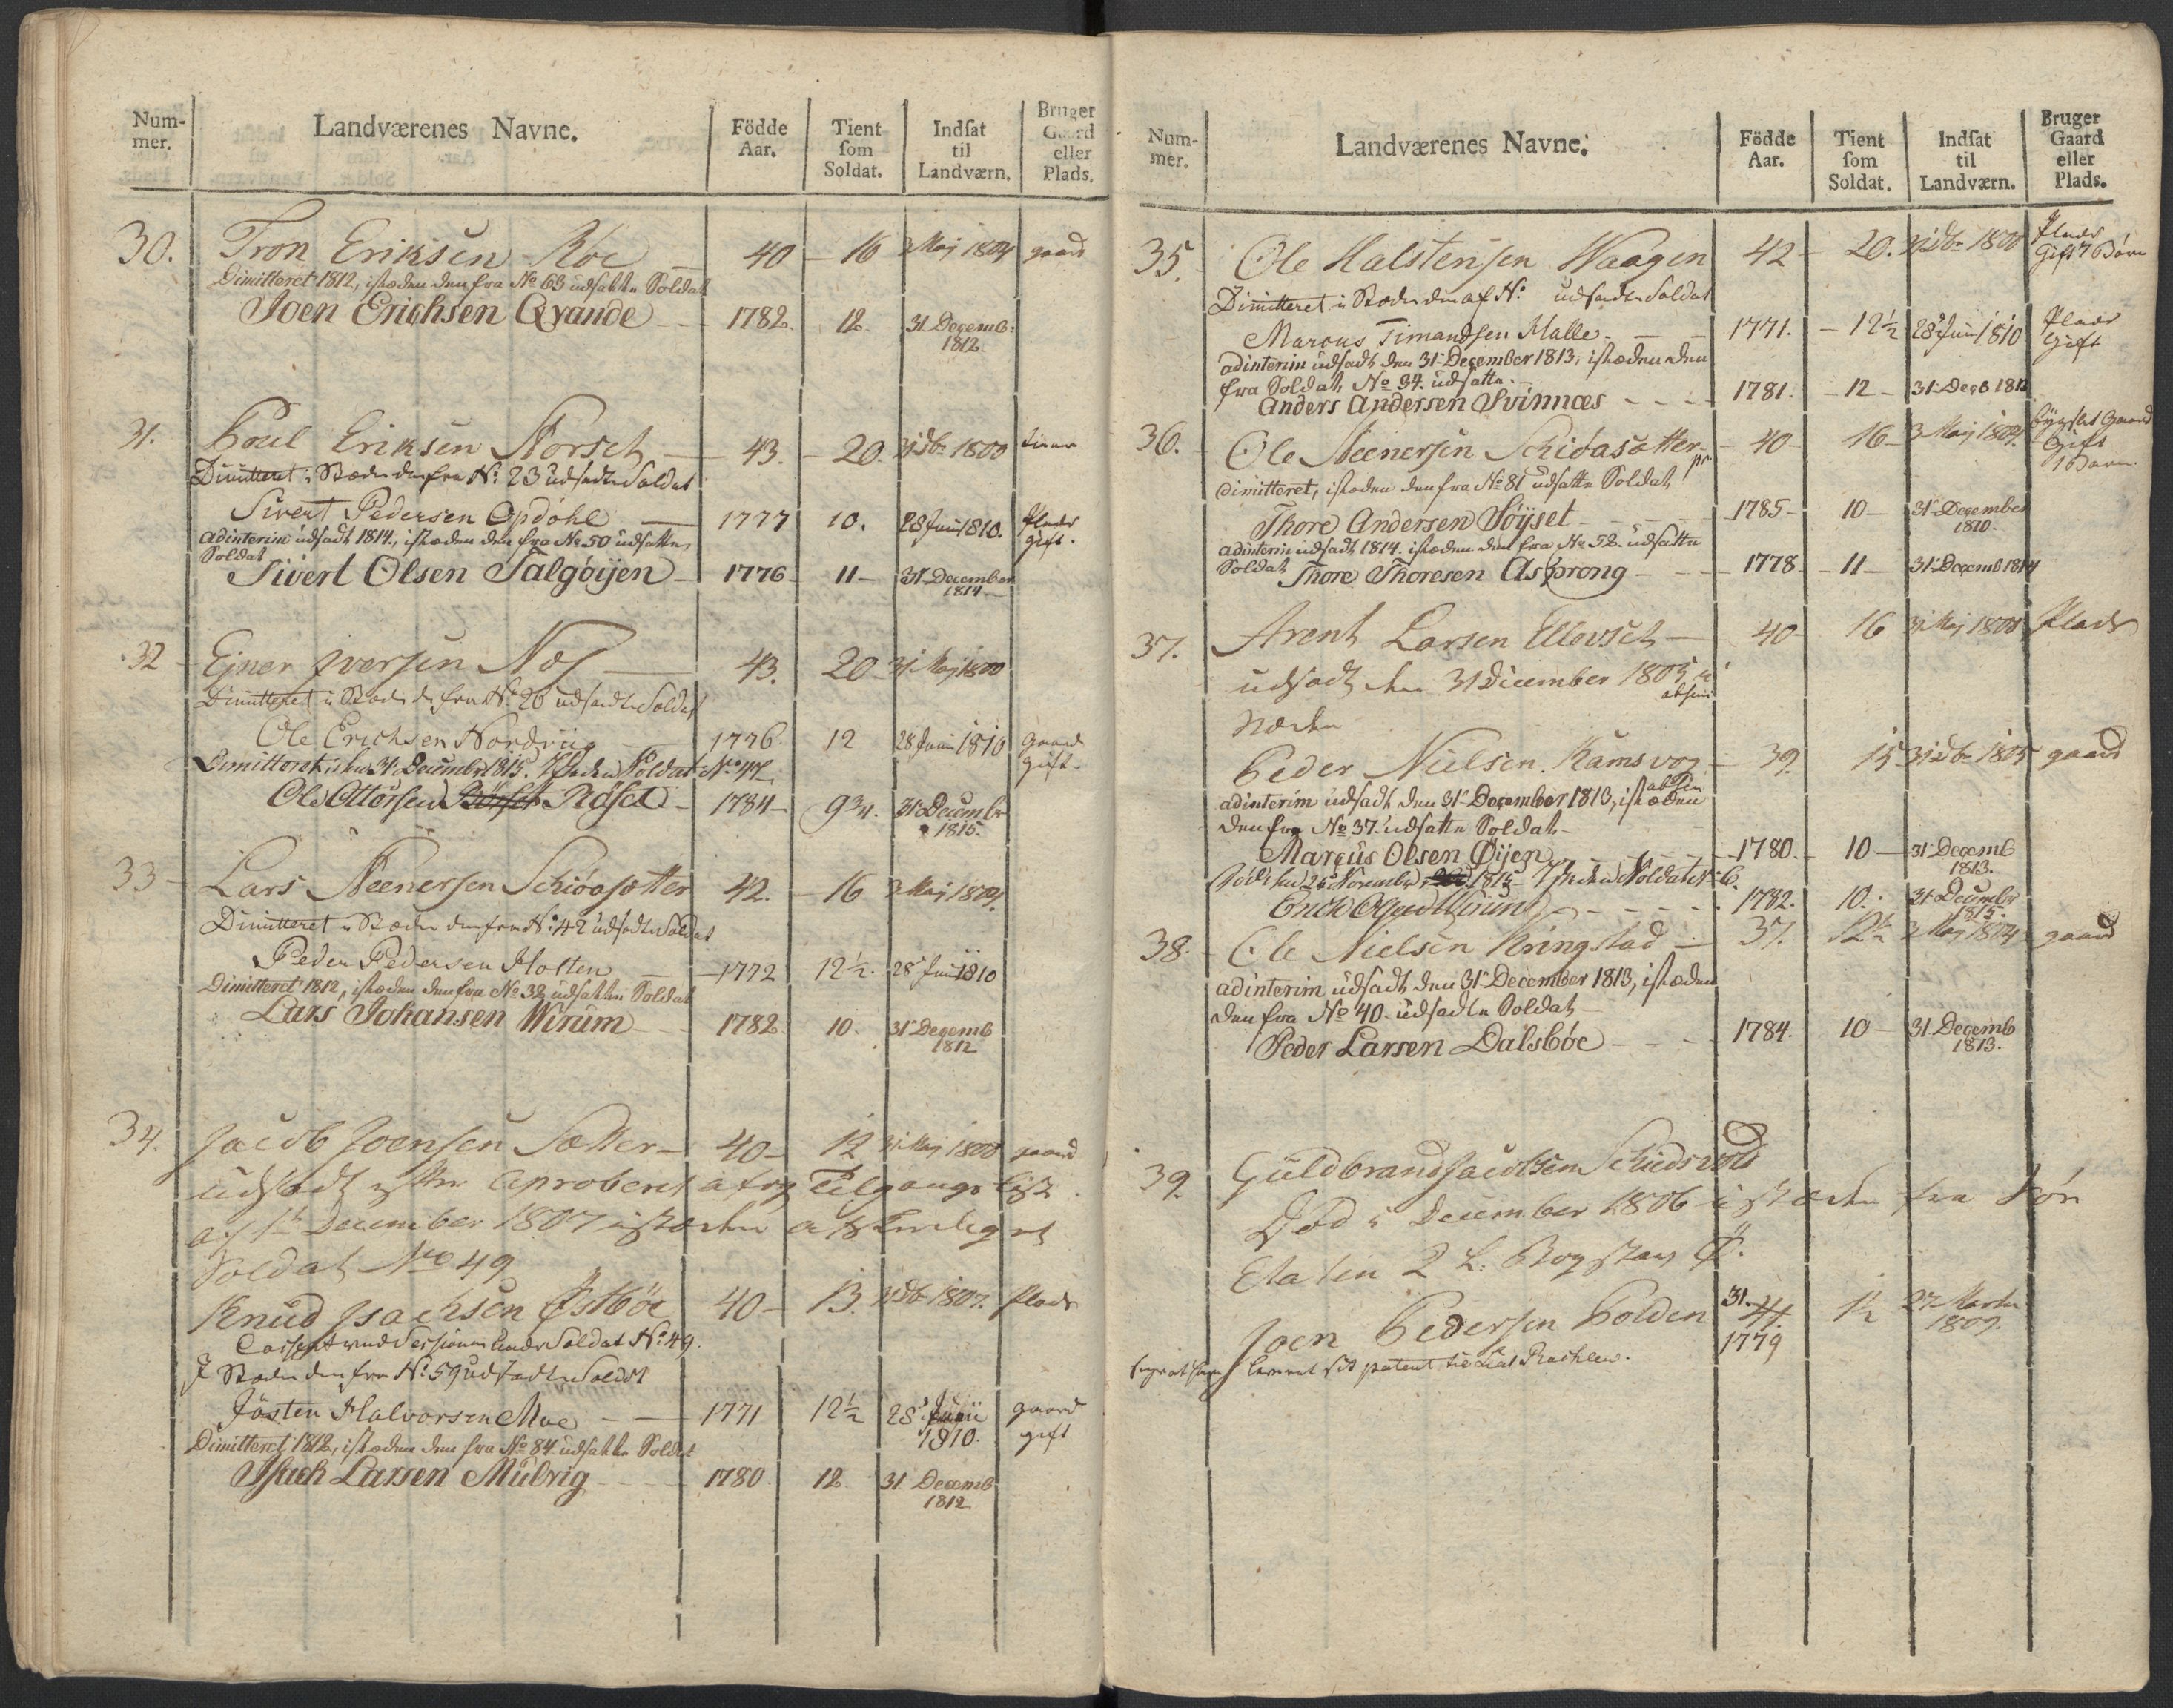 Num-
mer.
Landværenes Navne.
Födde
Aar.
Tient
som
Soldat.
Indsat
til
Landværn.
Bruger
Gaard
eller
Plads.
30. Tron Eriksen Röe 40 16 3 Maj 1804 gaard
Dimitteret 1812, istæden den fra No 63 udsatte Soldat
Joen Erichsen Qvande 1782. 12. 31 Decemb:
1812.
31. Poul Eriksen Norset 43. 20. 31 Db 1800
Dimitteret i Stæden den fra No: 23 udsadte Soldat
Sivert Pedersen Opdöhl 1777 10. 28 Junii 1810. Plads
gift.
adinterim udsadt 1814, istæden den fra No 50 udsatte
Soldat
Sivert Olsen Talgöijen 1776 11 31 December
1814
32 Ejner Iversen Nos 43. 20 31 Maj 1800
Dimitteret i Stæden den fra No. 26 udsadte Soldat
Ole Erichsen Nordvüg 1776. 12 28 Junii 1810 Gaard
gift
Dimitteret den 31 Decembr 1815. Isteden Soldat No 47
Ole Ottersen Röset 1784 9 3/4. 31 Decembr
1815.
33 Lars Steenersen Schiöasetter 42. 16 3 Maj 1804.
Dimitteret i Stæden den fra No: 42 udsadte Soldat
Peder Pedersen Holten 1772 12 1/2. 28 Junii 1810
Dimitteret 1812, istæden den fra No 32 udsatte Soldat
Lars Johansen Wirum 1782 10. 31 Decemb
1812
34. Jacob Joensen Sætter 40 12 31 Maj 1800 gaard
udsadt efter Aproberet afog Tilgangs List
af 1te December 1807 istæden
Soldat No 49
Knud Isachsen Östböe 40 13. 31 Db 1807. Plads
Cassert ved Sessionen under Soldat No: 49.
I Stæden den fra No: 59 udsadte Soldat
Jösten Halvorsen Moe 1771 12 1/2 28 Junii
1810. gaard
gift
Dimitteret 1812, istæden den fra No 84 udsatte Soldat
Isach Larsen Mülvig 1780 12 31 Decemb
1812
Num-
mer.
Landværenes Navne.
Födde
Aar.
Tient
som
Soldat.
Indsat
til
Landværn.
Bruger
Gaard
eller
Plads.
35. Ole Halstensen Waagen 42 20. 31 Db 1800 Plads
Gift 7 Börn
Dimitteret i Stæden den af No: udsadte Soldat
Marcus Timandsen Malle 1771. 12 1/2 28 Junii 1810 Plads
Gift
adinterim udsadt den 31 December 1813, istæden den
fra Soldat No 34. udsatte.
Anders Andersen Svinnæs 1781. 12 31 Decb 1812
36. Ole Steenersen Schiöasætter 40 16 3 Maj 1804. bygslet Gaard
Gift
1 Barn.
dimitteret, istæden den fra No 81 udsatte Soldat
Thore Andersen Söyset 1785 10 31 December
1810.
adinterim udsadt 1814. istæden den fra No 52. udsatte
Soldat Thore Thoresen Asprong 1778. 11 31 Decemb 1814
37. Arent Larsen Ellevset 40 16 31 Maj 1800 Plads
udsadt den 31 December 1805 i
Stæden
Peder Nielsen Kamsvog 39. 15 31 Db 1805 gaard
adinterim udsadt den 31 December 1813, istæden
den fra No 37. udsatte Soldat
Marcus Olsen Öijen 1780. 10 31 Decemb
1813.
Död den 26 Novembr 1815 Isteden Soldat No 6.
1782. 10. 31 Decembr
1815.
38. Ole Nielsen Kringstad 37. 12 1/2 3 Maj 1804 gaard
adinterim udsadt den 31 December 1813, istæden
den fra No 40. udsadte Soldat
Peder Larsen Dalsböe 1784. 10 31 Decemb
1813.
39. Guldbrand Jacobsen Schiedsvold
Död i December 1806 istæden fra
Etaten 2 L: Bogstav Ø.
Joen Pedersen Bolden 31. 1/2 27 Martii
1809.
1779
leveret sit patent til